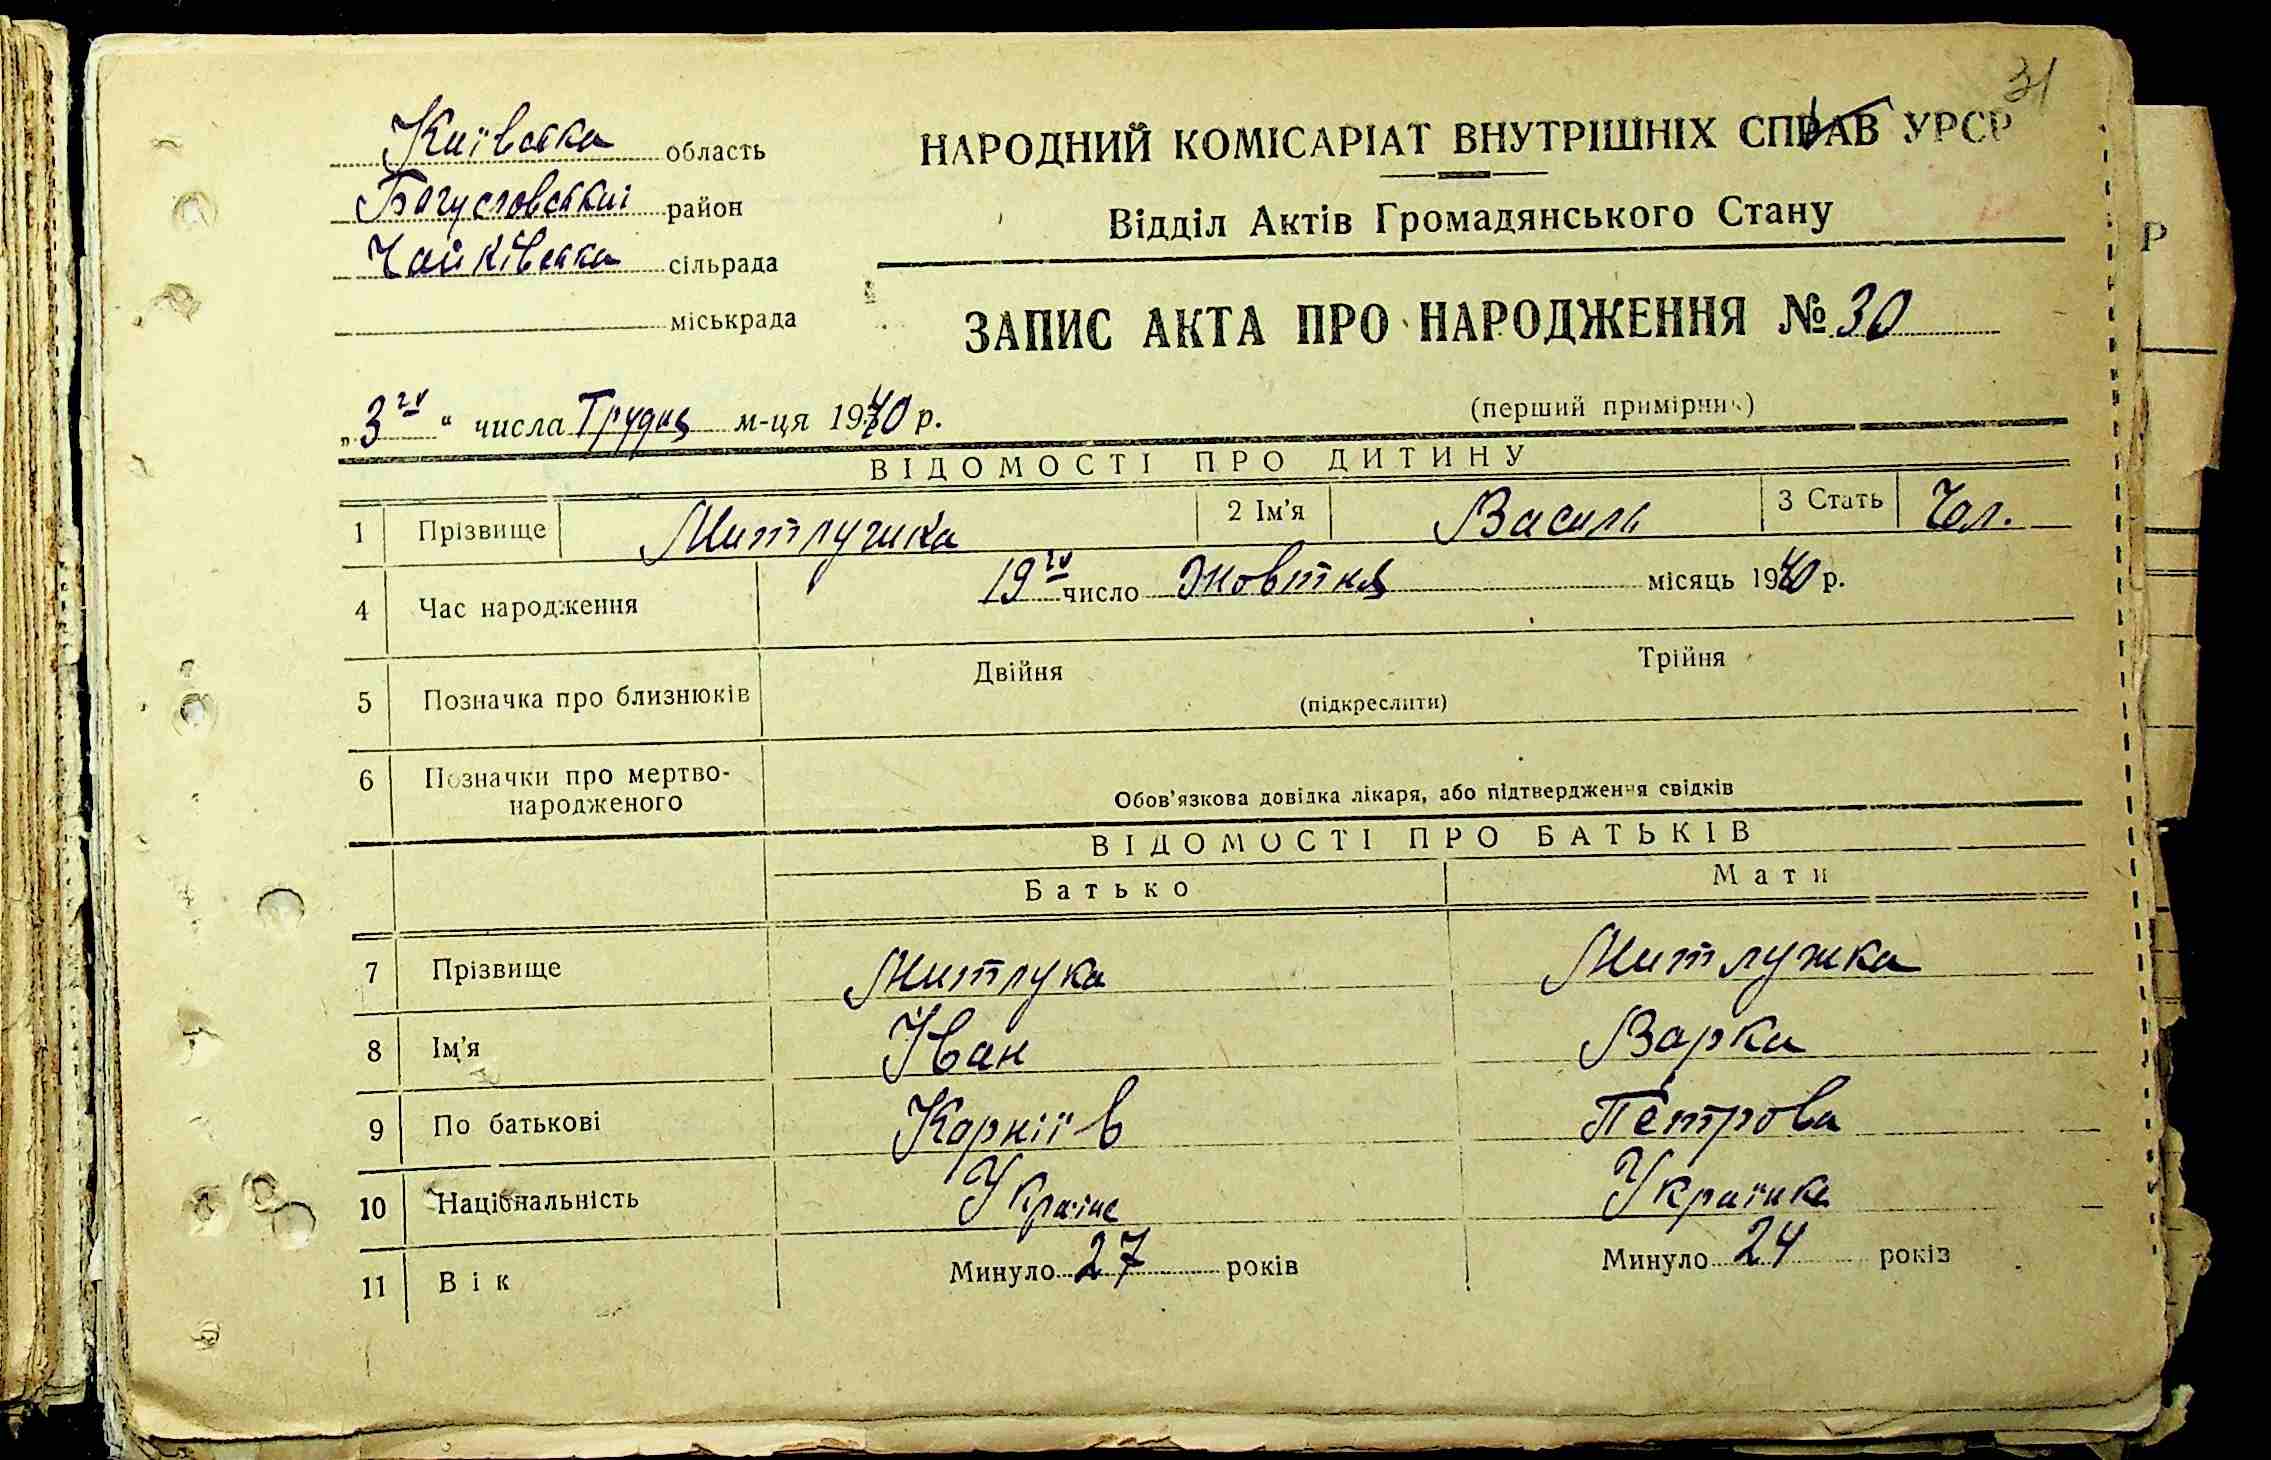 31
Київська область
НАРОДНИЙ КОМІСАРІАТ ВНУТРІШНІХ СПРАВ УРСР
Богуславський район
Відділ Актів Громадянського Стану
Чайківська сільрада
міськрада
ЗАПИС АКТА ПРО НАРОДЖЕННЯ № 30
„3го“ числа Грудня м-ця 1940 р.
(перший примірник)
ВІДОМОСТІ ПРО ДИТИНУ
1 Прізвище 2 Ім'я Василь 3 Стать Чол.
4 Час народження 19го число Жовтня місяць 1940 р.
5 Позначка про близнюків Двійня Трійня
(підкреслити)
6 Позначки про мертво-
народженого
Обов'язкова довідка лікаря, або підтвердження свідків
ВІДОМОСТІ ПРО БАТЬКІВ
Батько Мати
7 Прізвище
8 Ім'я Іван Варка
9 По батькові Корніїв Петрова
10 Національність Україне Українка
11 Вік Минуло 27 років Минуло 24 років